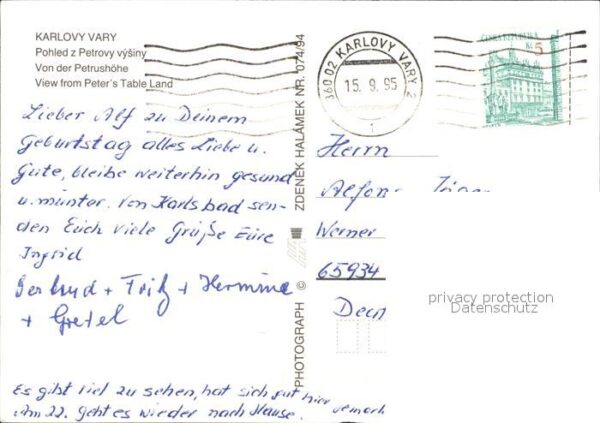 KARLOVY VARY
Pohled z Petrovy výšiny
Von der Petrushöhe
View from Peter's Table Land
360 02 KARLOVY VARY 2
15.9.95
1
ČESKÁ REPUBLIKA
Kč 5
Lieber Alf zu Deinem
Geburtstag alles Liebe u.
Gute, bleibe weiterhin gesund
u. munter. Von Karlsbad sen-
den Euch viele Grüße Eure
Ingrid
Gertrud + Fritz + Hermine
+ Gretel
Es gibt viel zu sehen, hat sich gut hier gemacht
Am 22. geht es wieder nach Hause.
PHOTOGRAPH © ZDENEK HALÁMEK NR. 074/94
Herrn
Alfons
Werner
65934
privacy protection
Datenschutz